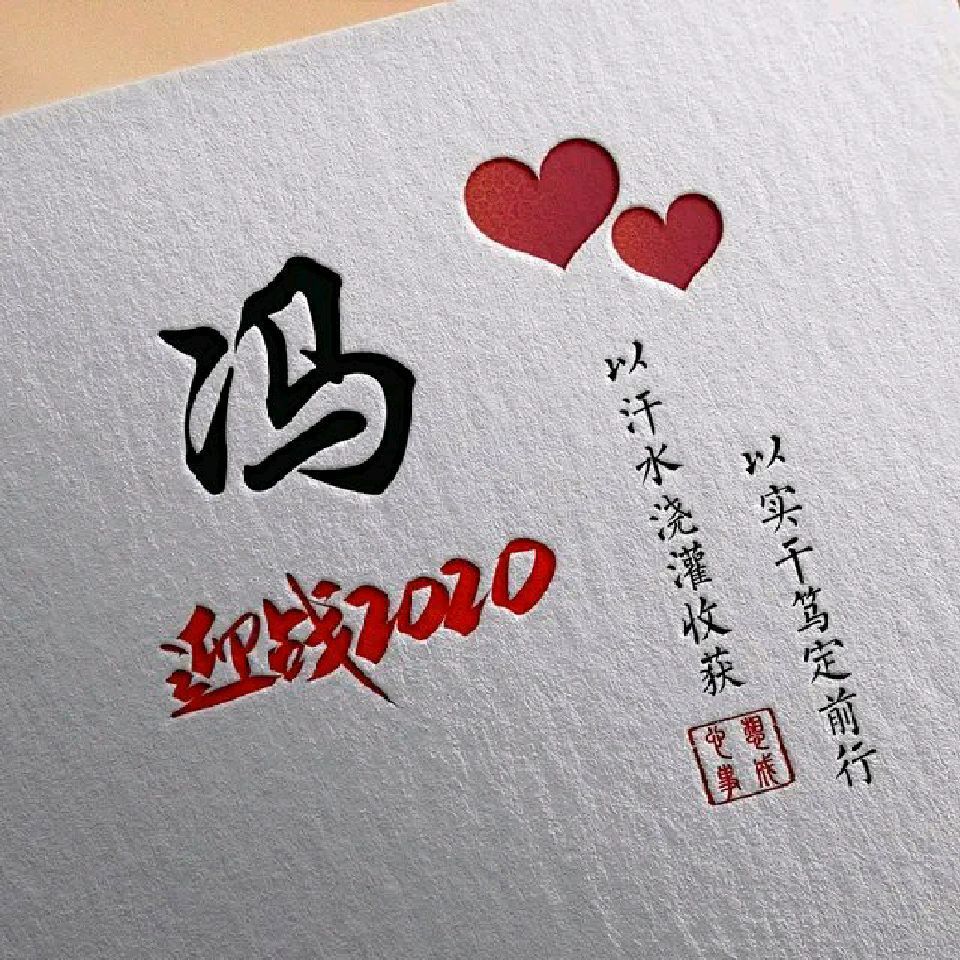 冯
迎战2020
以汗水浇灌收获
以实干笃定前行
心想事成